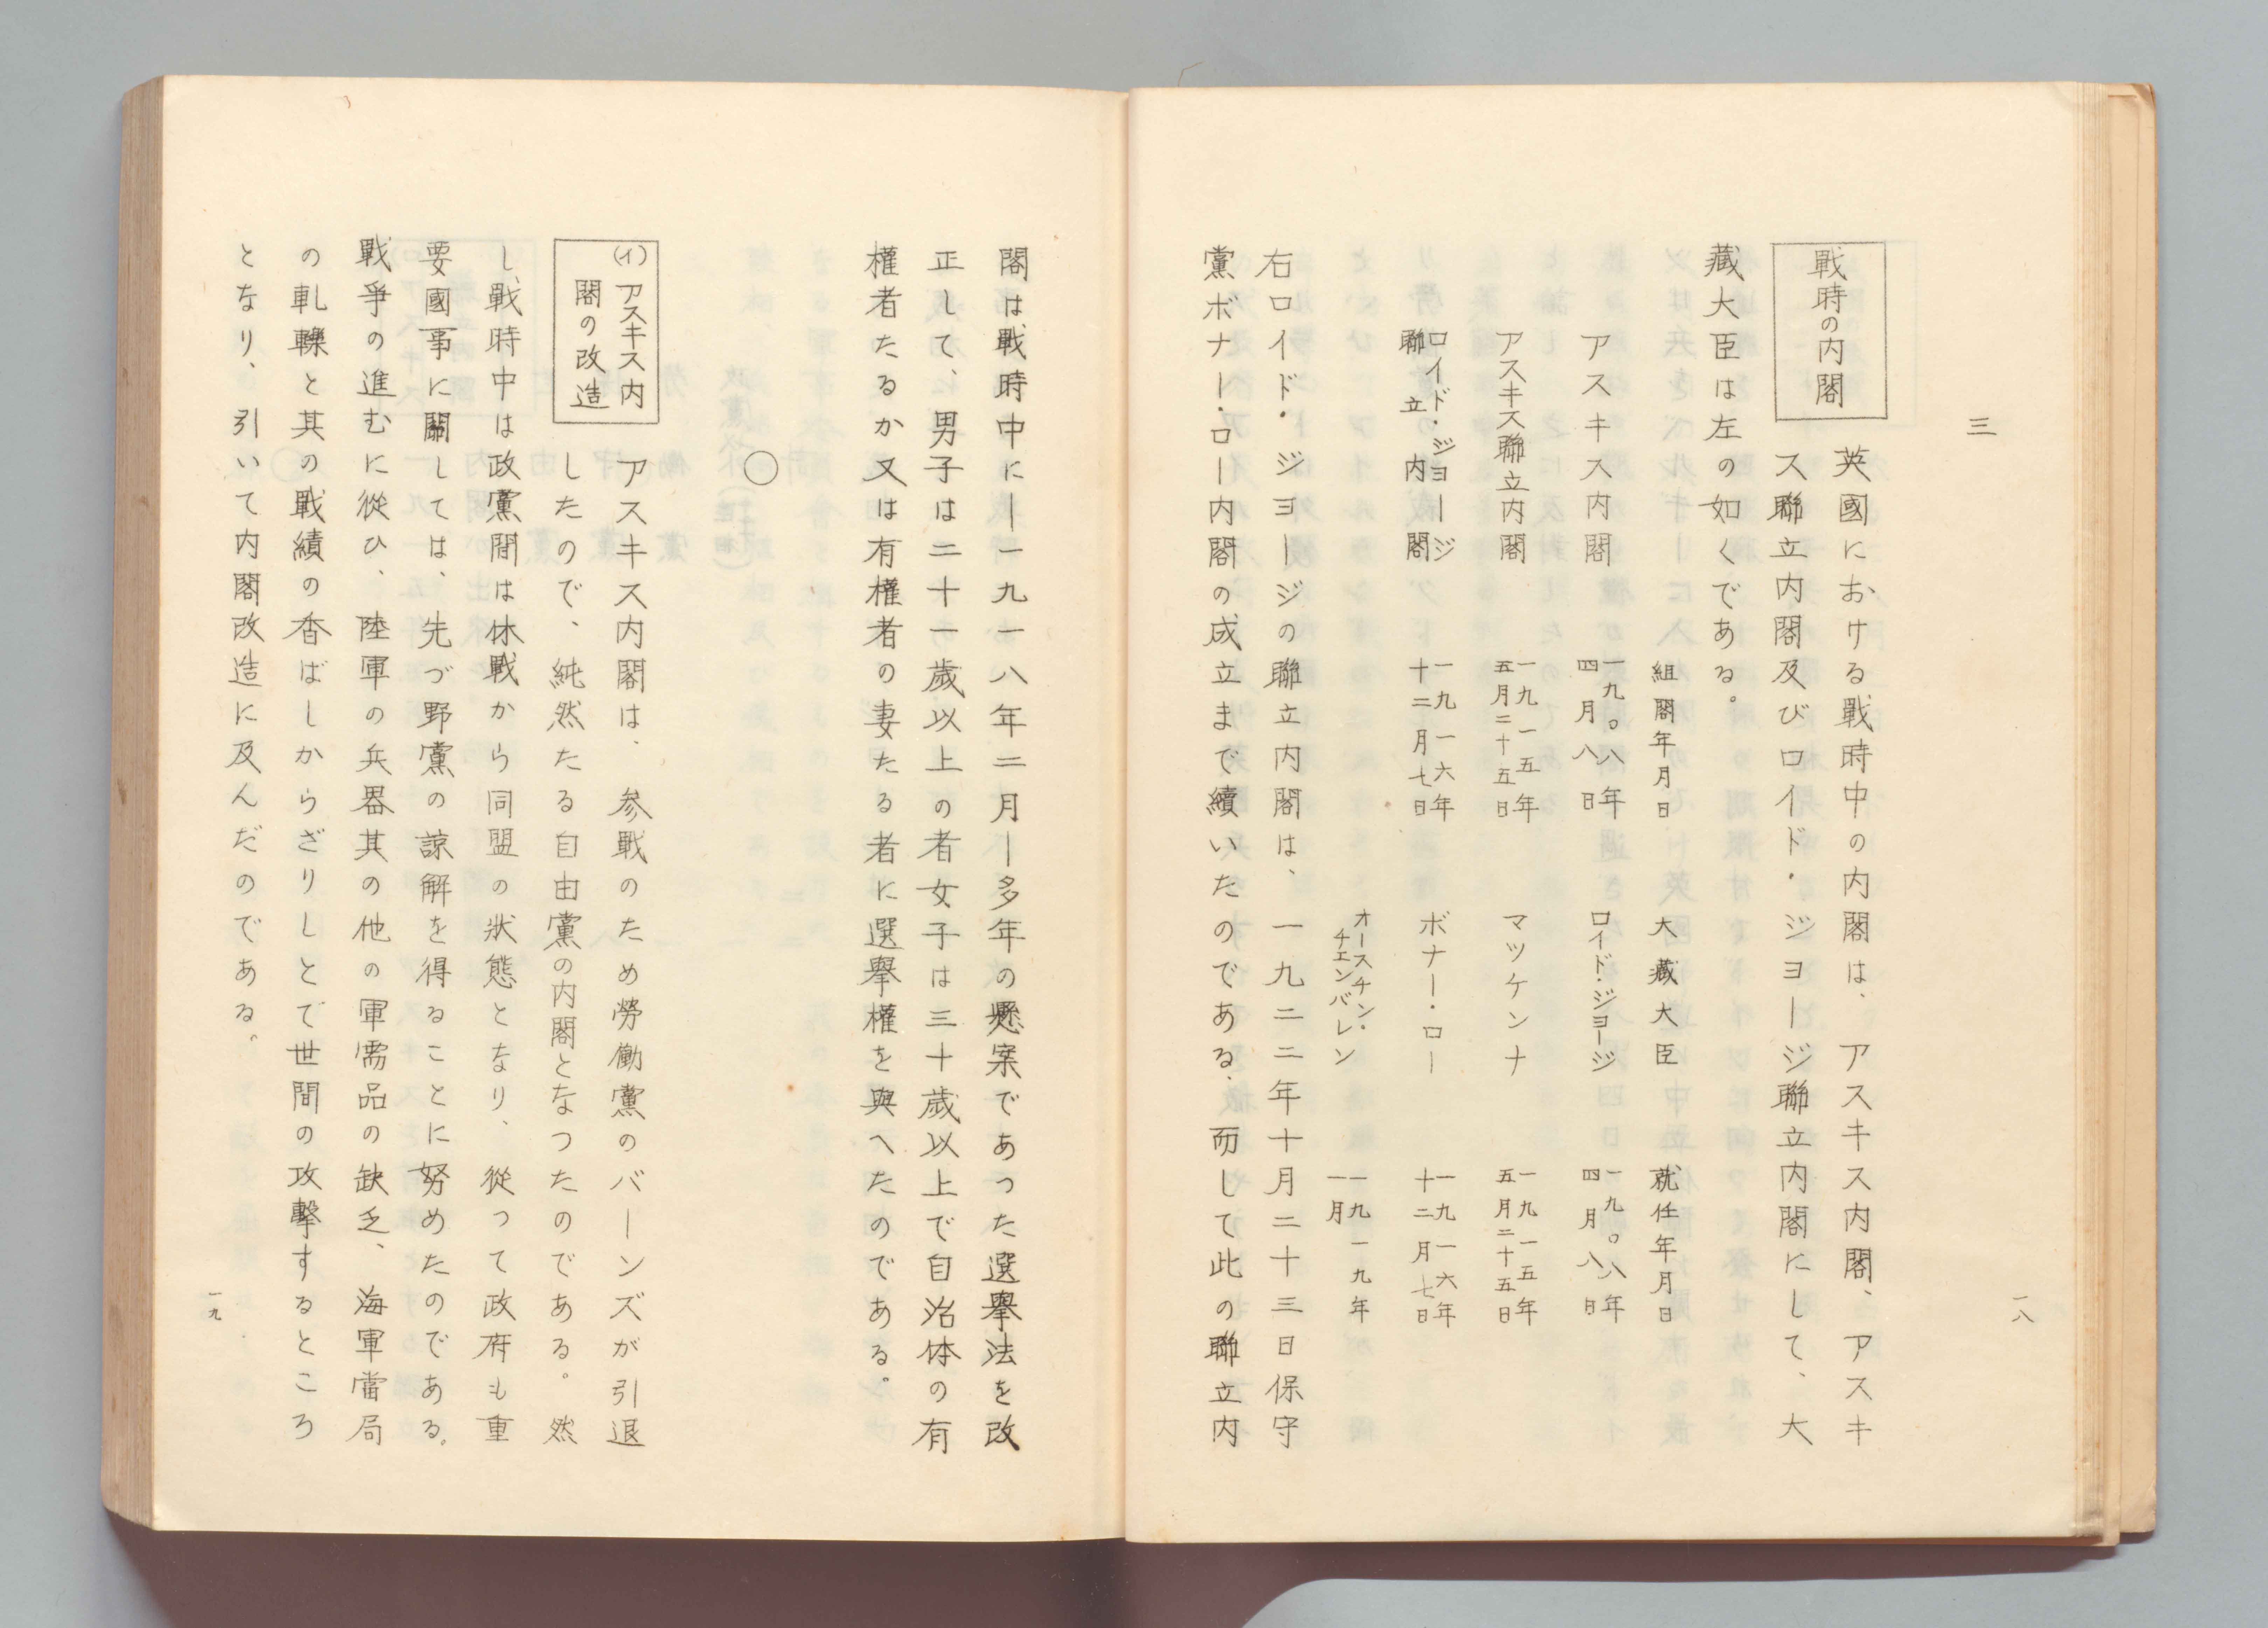 三
戰時の内閣
英國における戰時中の内閣は、アスキス内閣、アスキ
ス聯立内閣及びロイド・ジヨージ聯立内閣にして、大
藏大臣は左の如くである。
組閣年月日 大藏大臣 就任年月日
アスキス内閣 一九〇八年四月八日 ロイド・ジヨージ 一九〇八年四月八日
アスキス聯立内閣 一九一五年五月二十五日 マツケンナ 一九一五年五月二十五日
ロイド・ジヨージ聯立内閣 一九一六年十二月七日 ボナー・ロー 一九一六年十二月七日
オースチン・チエンバレン 一九一九年一月
右ロイド・ジヨージの聯立内閣は、一九二二年十月二十三日保守
黨ボナー・ロー内閣の成立まで續いたのである。而して此の聯立内
一八
閣は戰時中に―一九一八年二月―多年の懸案であった選擧法を改
正して、男子は二十一歲以上の者女子は三十歲以上で自治体の有
權者たるか又は有權者の妻たる者に選擧權を與へたのである。
○
(イ)アスキス内
閣の改造
アスキス内閣は、参戰のため勞働黨のバーンズが引退
したので、純然たる自由黨の内閣となつたのである。然
し、戰時中は政黨間は休戰から同盟の狀態となり、從って政府も重
要國事に關しては、先づ野黨の諒解を得ることに努めたのである。
戰爭の進むに從ひ、陸軍の兵器其の他の軍需品の缺乏、海軍當局
の軋轢と其の戰績の香ばしからざりしとで世間の攻擊するところ
となり、引いて内閣改造に及んだのである。
一九